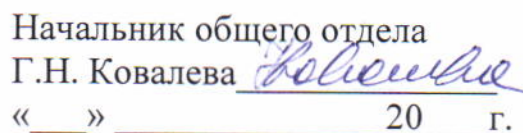 Начальник общего отдела
Г.Н. Ковалева Ковалева
«___» ______________ 20 г.